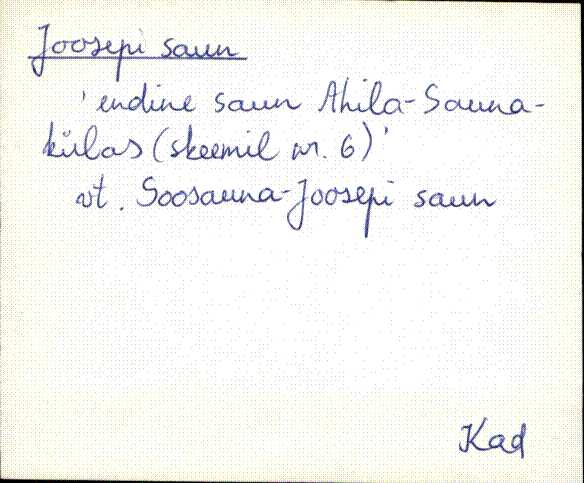 Joosepi saun
'endine saun Ahila-Sauna-
külas (skeemil nr. 6)'
vt. Soosauna-Joosepi saun
Kad